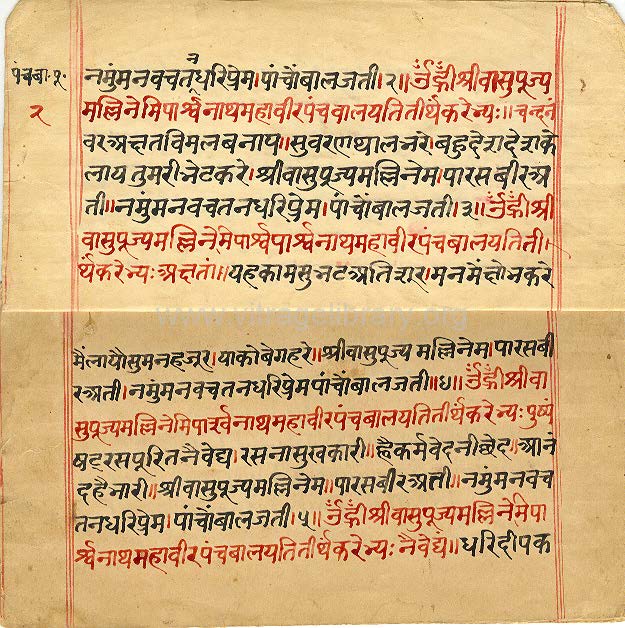 पंचबा॰पू॰
२
नमुंमनवचतनधरिप्रेम।पांचोंबालजती।२॥ॐह्रीश्रीवासुपूज्य
मल्लिनेमिपार्श्वनाथमहावीरपंचबालयतितीर्थंकरेभ्यः॥चन्दनं
वरअक्षतविमलबनाय॥सुवरणथालभरे।बहुदेशदेशके
लायतुमरीभेटकरे।श्रीवासुपूज्यमल्लिनेम।पारसबीरअ
ती॥नमुंमनवचतनधरिप्रेम।पांचोंबालजती।३॥ॐह्रीश्री
वासुपूज्यमल्लिनेमिपार्श्वपार्श्वनाथमहावीरपंचबालयतिती।
र्थकरेभ्यःअक्षतां॥यहकामसुभटअतिशूर।मनमेंक्षोभकरे
मैंलायौसुमनहजूर।याकोबेगहरे॥श्रीवासुपूज्यमल्लिनेम।पारसबी
रअती।नमुंमनवचतनधरिप्रेमपांचोंबालजती॥४॥ॐह्रीश्रीवा
सुपूज्यमल्लिनेमिपार्श्वनाथमहावीरपंचबालयतितीर्थकरेभ्यःपुष्पं
षट्रसपूरितनैवेद्य।रसनासुखकारी॥ह्वैकर्मवेदनीछेद॥आनं
दह्वैभारी॥श्रीवासुपूज्यमल्लिनेम॥पारसबीरअती॥नमुंमनवच
तनधरिप्रेम।पांचोंबालजती।५॥ॐह्रीश्रीवासुपूज्यमल्लिनेमिपा
र्श्वनाथमहावीरपंचबालयतितीर्थकरेभ्यःनैवेद्यं॥धरिदीपक